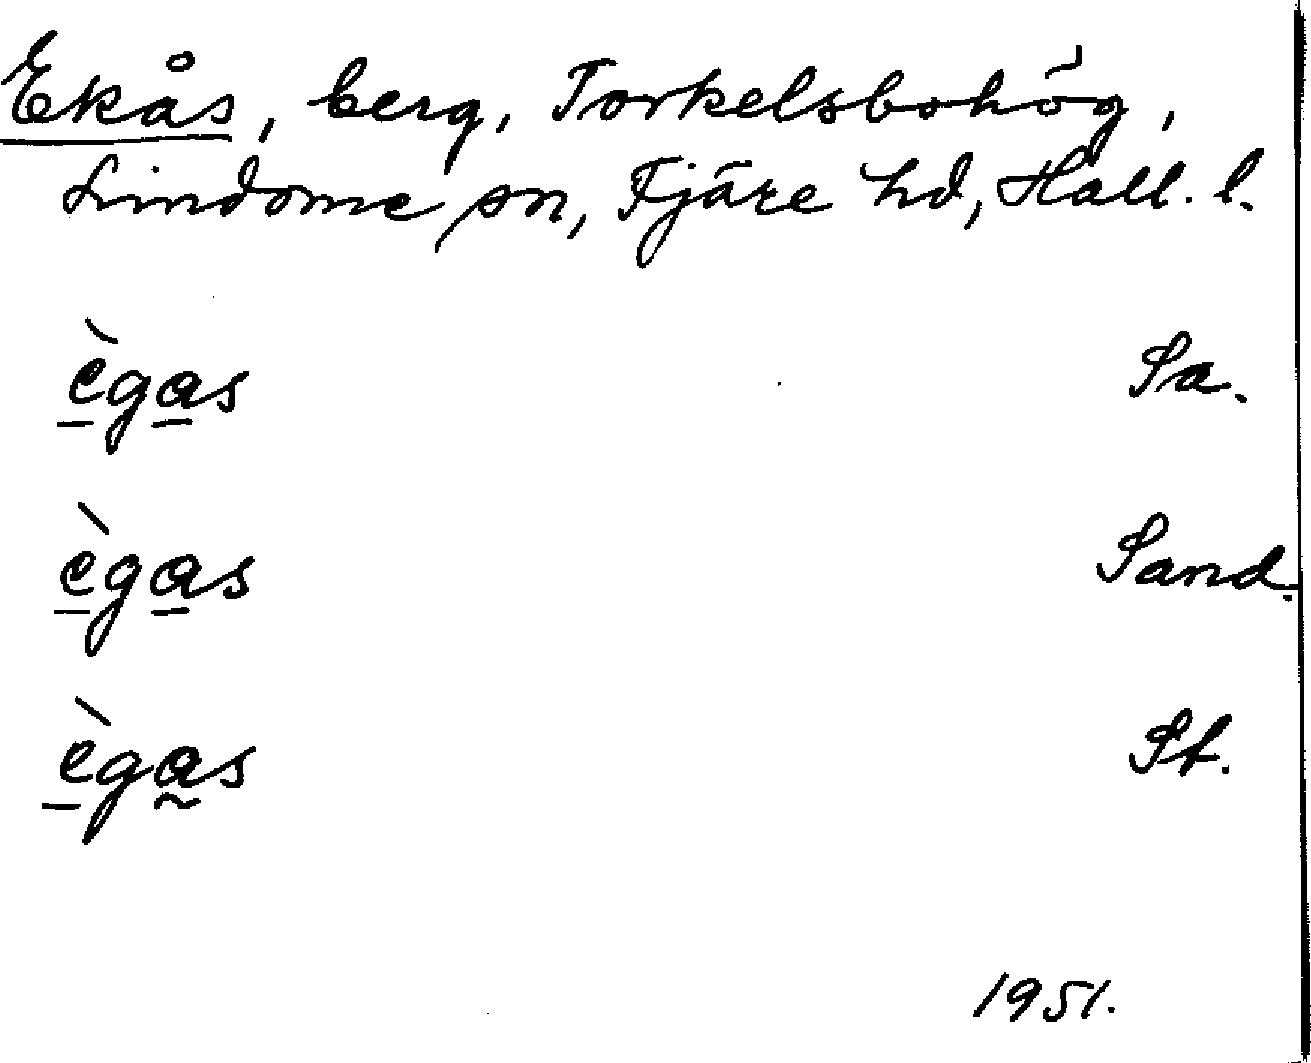 Ekås, berg, Torkelsbohög,
Lindome sn, Fjäre hd, Hall. l.
ègas Sa.
ègas Sand.
ègas St.
1951.